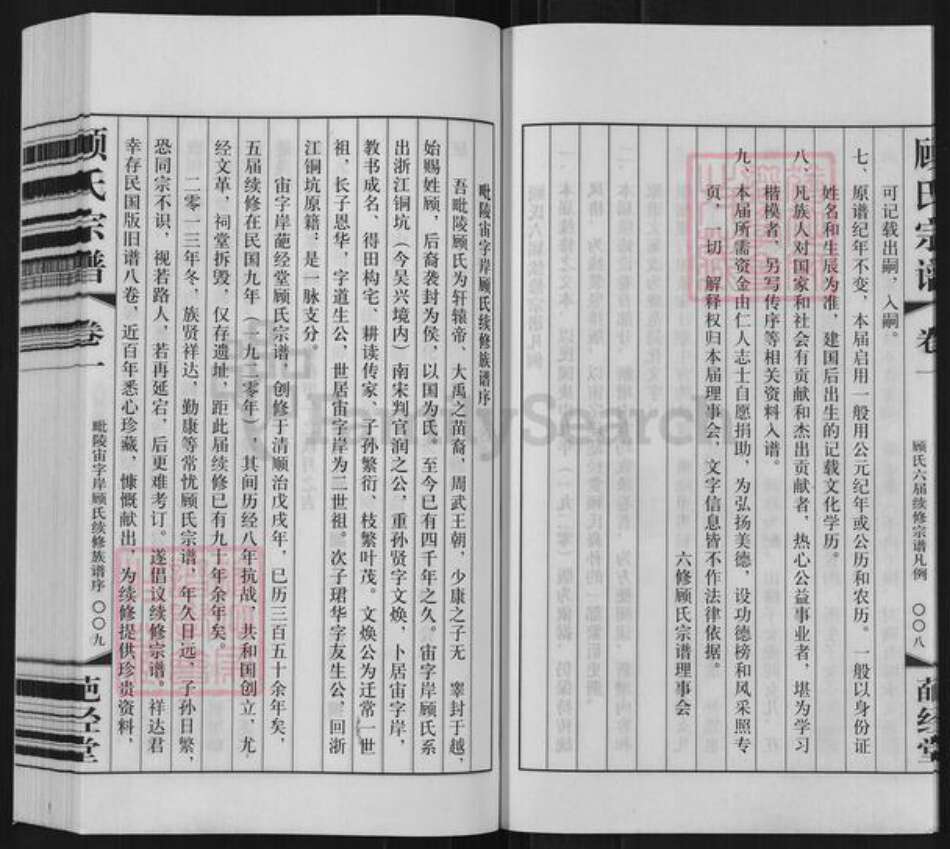 顾氏宗谱
卷一
顾氏六届续修宗谱凡例
〇〇八
葩经堂
可记载出嗣，入嗣。
七、原谱纪年不变，本届启用一般用公元纪年或公历和农历。一般以身份证
姓名和生辰为准，建国后出生的记载文化学历。
八、凡族人对国家和社会有贡献和杰出贡献者，热心公益事业者，堪为学习
楷模者，另写传序等相关资料入谱。
九、本届所需资金由仁人志士自愿捐助，为弘扬美德，设功德榜和风采照专
页，一切 解释权归本届理事会，文字信息皆不作法律依据。
六修顾氏宗谱理事会
毗陵宙字岸顾氏续修族谱序
吾毗陵顾氏为轩辕帝、大禹之苗裔，周武王朝，少康之子无 睾封于越，
始赐姓顾，后裔袭封为侯，以国为氏，至今已有四千年之久。宙字岸顾氏系
出浙江铜坑（今吴兴境内）南宋判官润之公，重孙贤字文焕，卜居宙字岸，
教书成名、得田构宅、耕读传家、子孙繁衍、枝繁叶茂。文焕公为迁常一世
祖，长子恩华，字道生公，世居宙字岸为二世祖。次子珺华字友生公，回浙
江铜坑原籍：是一脉支分。
宙字岸葩经堂顾氏宗谱，创修于清顺治戊戌年，已历三百五十余年矣，
五届续修在民国九年（一九二零年），其间历经八年抗战，共和国创立，尤
经文革，祠堂拆毁，仅存遗址，距此届续修已有九十年余年矣。
二零一三年冬，族贤祥达，勤康等常忧顾氏宗谱，年久日远，子孙日繁，
恐同宗不识，视若路人，若再延宕，后更难考订。遂倡议续修宗谱。祥达君
幸存民国版旧谱八卷，近百年悉心珍藏，慷慨献出，为续修提供珍贵资料，
顾氏宗谱
卷一
毗陵宙字岸顾氏续修族谱序
〇〇九
葩经堂